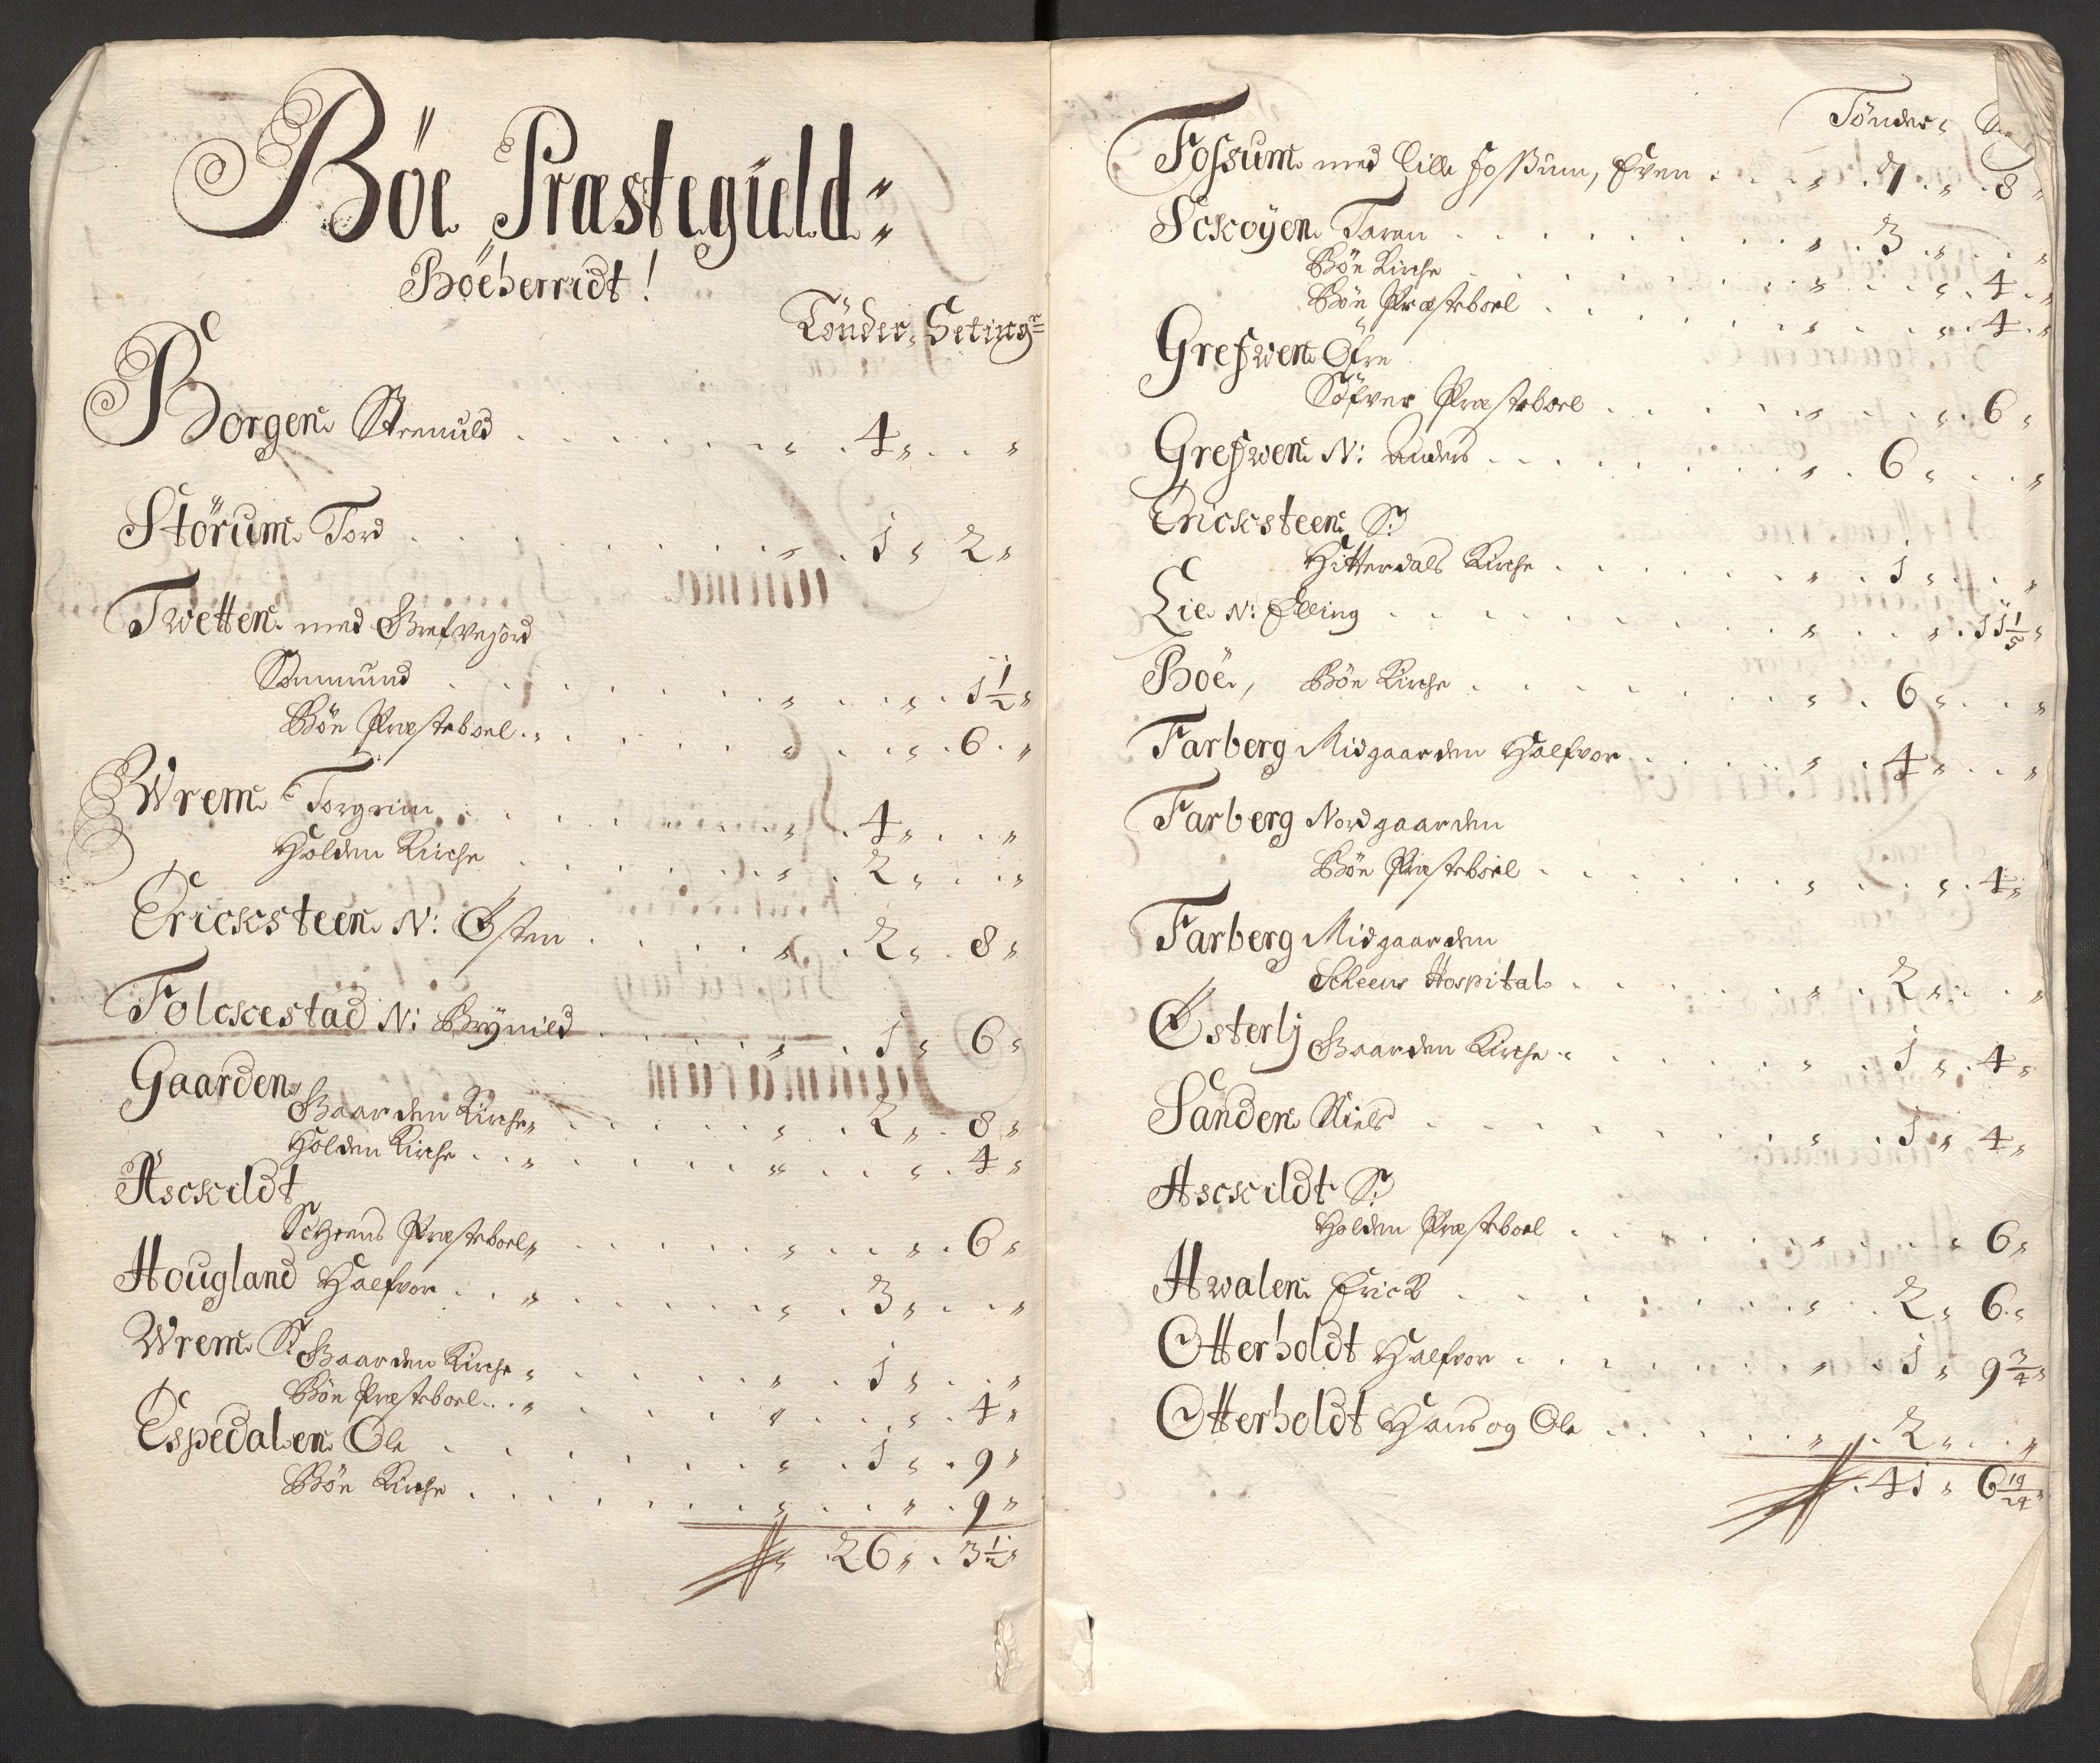 Böe Præstegield
Böeherridt!
Tönder, Seting
Borgen Stenuld 4
Störum Tord 1 2
Twetten med Grefvejord
Sommund 1 1/2
Böe Præsteboel 6
Wrem Torgrim 4
Holden Kirche 2
Ericksteen N: Østen 2 8
Folckestad N: Brynild 1 6
Gaarden
Gaarden Kirche 2 8
Holden Kirche 4
Asckildt
Scheens Præsteboel 6
Hougland Halfvor 3
Wrem S: Gaarden Kirche 1
Böe Præsteboel 4
Espedalen Ole 1 9
Böe Kirche 9
26 3 1/2
Tönder
Fossum med Lille Fossum, Even 1 8
Sckoyen Taran 3
Böe Kirche 4
Böe Præsteboel 4
Grefwen Öfre
Præsteboel 6
Grefwen N: Anders 6
Ericksteen S:
Hitterdals Kirche 1
Lie N: Elling 11 1/5
Böe, Böe Kirche 6
Farberg Midgaarden Halfvor 4
Farberg Nordgaarden
Böe Præsteboel 4
Farberg Midgaarden
Scheens Hospital 2
Østerlj Gaarden Kirche 1 4
Sanden Niels 1 4
Asckildt S:
Holden Præsteboel 6
Hwalen Erick 2 6
Otterholdt Halfvor 1 9 3/4
Otterholdt Hans og Ole 2
41 6 19/24